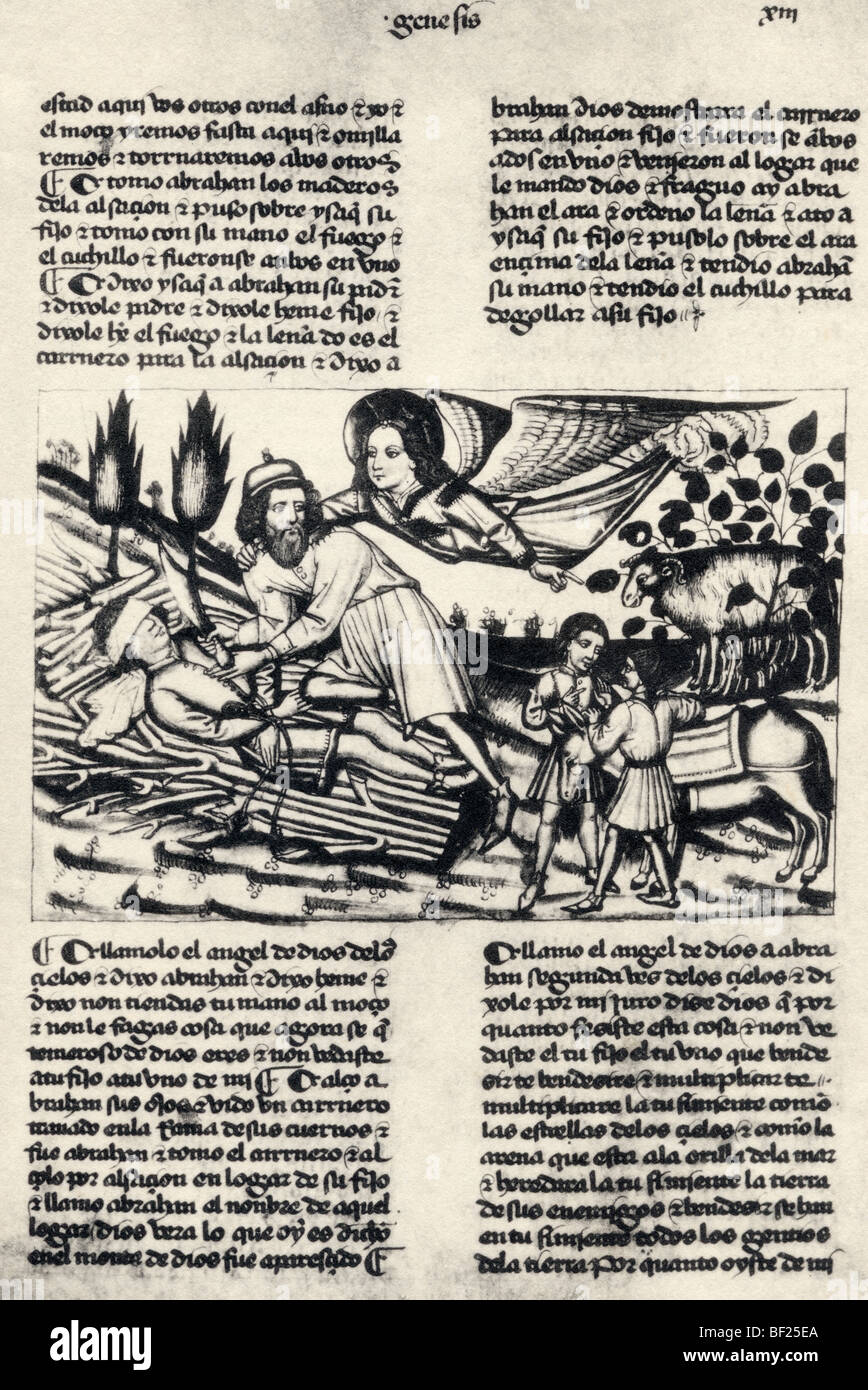 genesis
xiii
estad aqui vos otros conel asno & yo &
el moço yremos fasta aqui & omilla
remos & tornaremos a vos otros
E tomo abrahan los maderos
dela alsaçion & puso sobre ysaq su
fijo & tomo con su mano el fuego &
el cuchillo & fueronse anbos en vno
E dixo ysaq a abrahan su padre
& dixole padre & dixole heme fijo &
dixole he el fuego & la leña do es el
carrnero para la alsaçion & dixo a
brahan dios demostrara el carrnero
para alsaçion fijo & fueron se anbos
ados en vno & venieron al logar que
le mando dios & fraguo ay abra
han el ara & ordeno la leña & ato a
ysaq su fijo & pusolo sobre el ara
ençima dela leña & tendio abrahan
su mano & tendio el cuchillo para
degollar a su fijo
E llamolo el angel de dios delos
çielos & dixo abrahan & dixo heme &
dixo non tiendas tu mano al moço
& non le fagas cosa que agora se q
temeroso de dios eres & non vedaste
atu fijo atu vno de mi E alço a
brahan sus ojos & vido vn carrnero
travado enla rama de sus cuernos &
fue abrahan & tomo el carrnero & al
çolo por alsaçion en logar de su fijo
& llamo abrahan el nonbre de aquel
logar dios vera lo que oy es dicho
enel monte de dios fue aparesçido E
E llamo el angel de dios a abra
han segunda ves delos çielos & di
xole por mi juro dise dios q por
quanto fesiste esta cosa & non ve
daste el tu fijo el tu vno que bende
sir te bendesire & multiplicar te
multiplicare la tu simiente como
las estrellas delos çielos & como la
arena que esta ala orilla dela mar
& heredara la tu simiente la tierra
de sus enemigos & bendesir se han
en tu simiente todos los gentios
dela tierra por quanto oyste de mi
alamy
Image ID: BF25EA
www.alamy.com